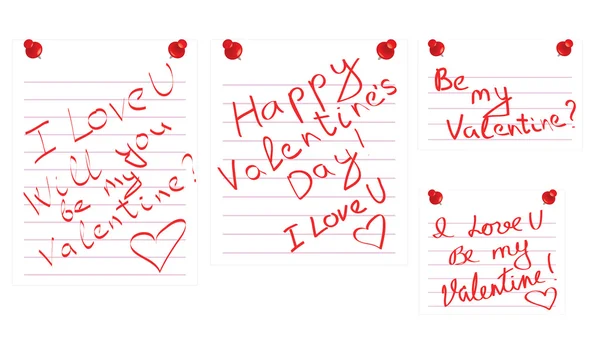 I Love U
Will you
be my
Valentine?
Happy
Valentine's
Day!
I Love U
Be
my
Valentine?
I Love U
Be my
Valentine!